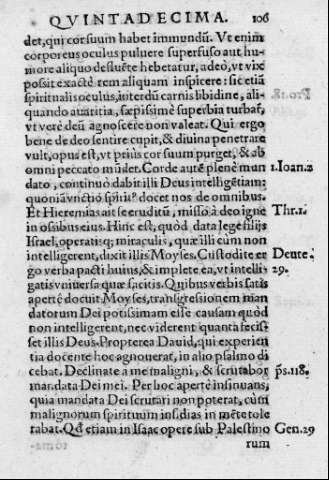 QVINTADECIMA. 106
det, qui cor suum habet immundũ. Vt enim
corporeus oculus puluere superfuso aut hu-
more aliquo defluẽte hebetatur, adeo, vt vix
possit exactè rem aliquam inspicere: sic etiã
spiritualis oculus, interdũ carnis libidine, ali-
quando auaritia, sæpissimè superbia turbat,
vt verè deũ agnoscere non valeat. Qui ergo
bene de deo sentire cupit, & diuina penetrare
vult, opus est, vt priùs cor suum purget, & ab
omni peccato mũdet. Corde autẽ plenè mun
dato, continuò dabit illi Deus intelligẽtiam:
quoniã vnctio spirit⁹ docet nos de omnibus.
Et Hieremias ait se eruditũ, misso à deo igne
in ossibus eius. Hinc est, quòd data lege filijs
Israel, operatisq; miraculis, quæ illi cùm non
intelligerent, dixit illis Moyses. Custodite er
go verba pacti huius, & implete ea, vt intelli-
gatis vniuersa quæ facitis. Quibus verbis satis
apertè docuit Moyses, transgressionem man
datorum Dei potissimam esse causam quòd
non intelligerent, nec viderent quanta fecis
set illis Deus. Propterea Dauid, qui experien
tia docente hoc agnouerat, in alio psalmo di
cebat. Declinate a me maligni, & scrutabor
mandata Dei mei. Per hoc apertè insinuans,
quia mandata Dei scrutari non poterat, cùm
malignorum spirituum insidias in mẽte tole
rabat. Qđ etiam in Isaac opere sub Palestino
rum
1.Ioan.2
Thr.1.
Deute.
29.
ps.118.
Gen.29